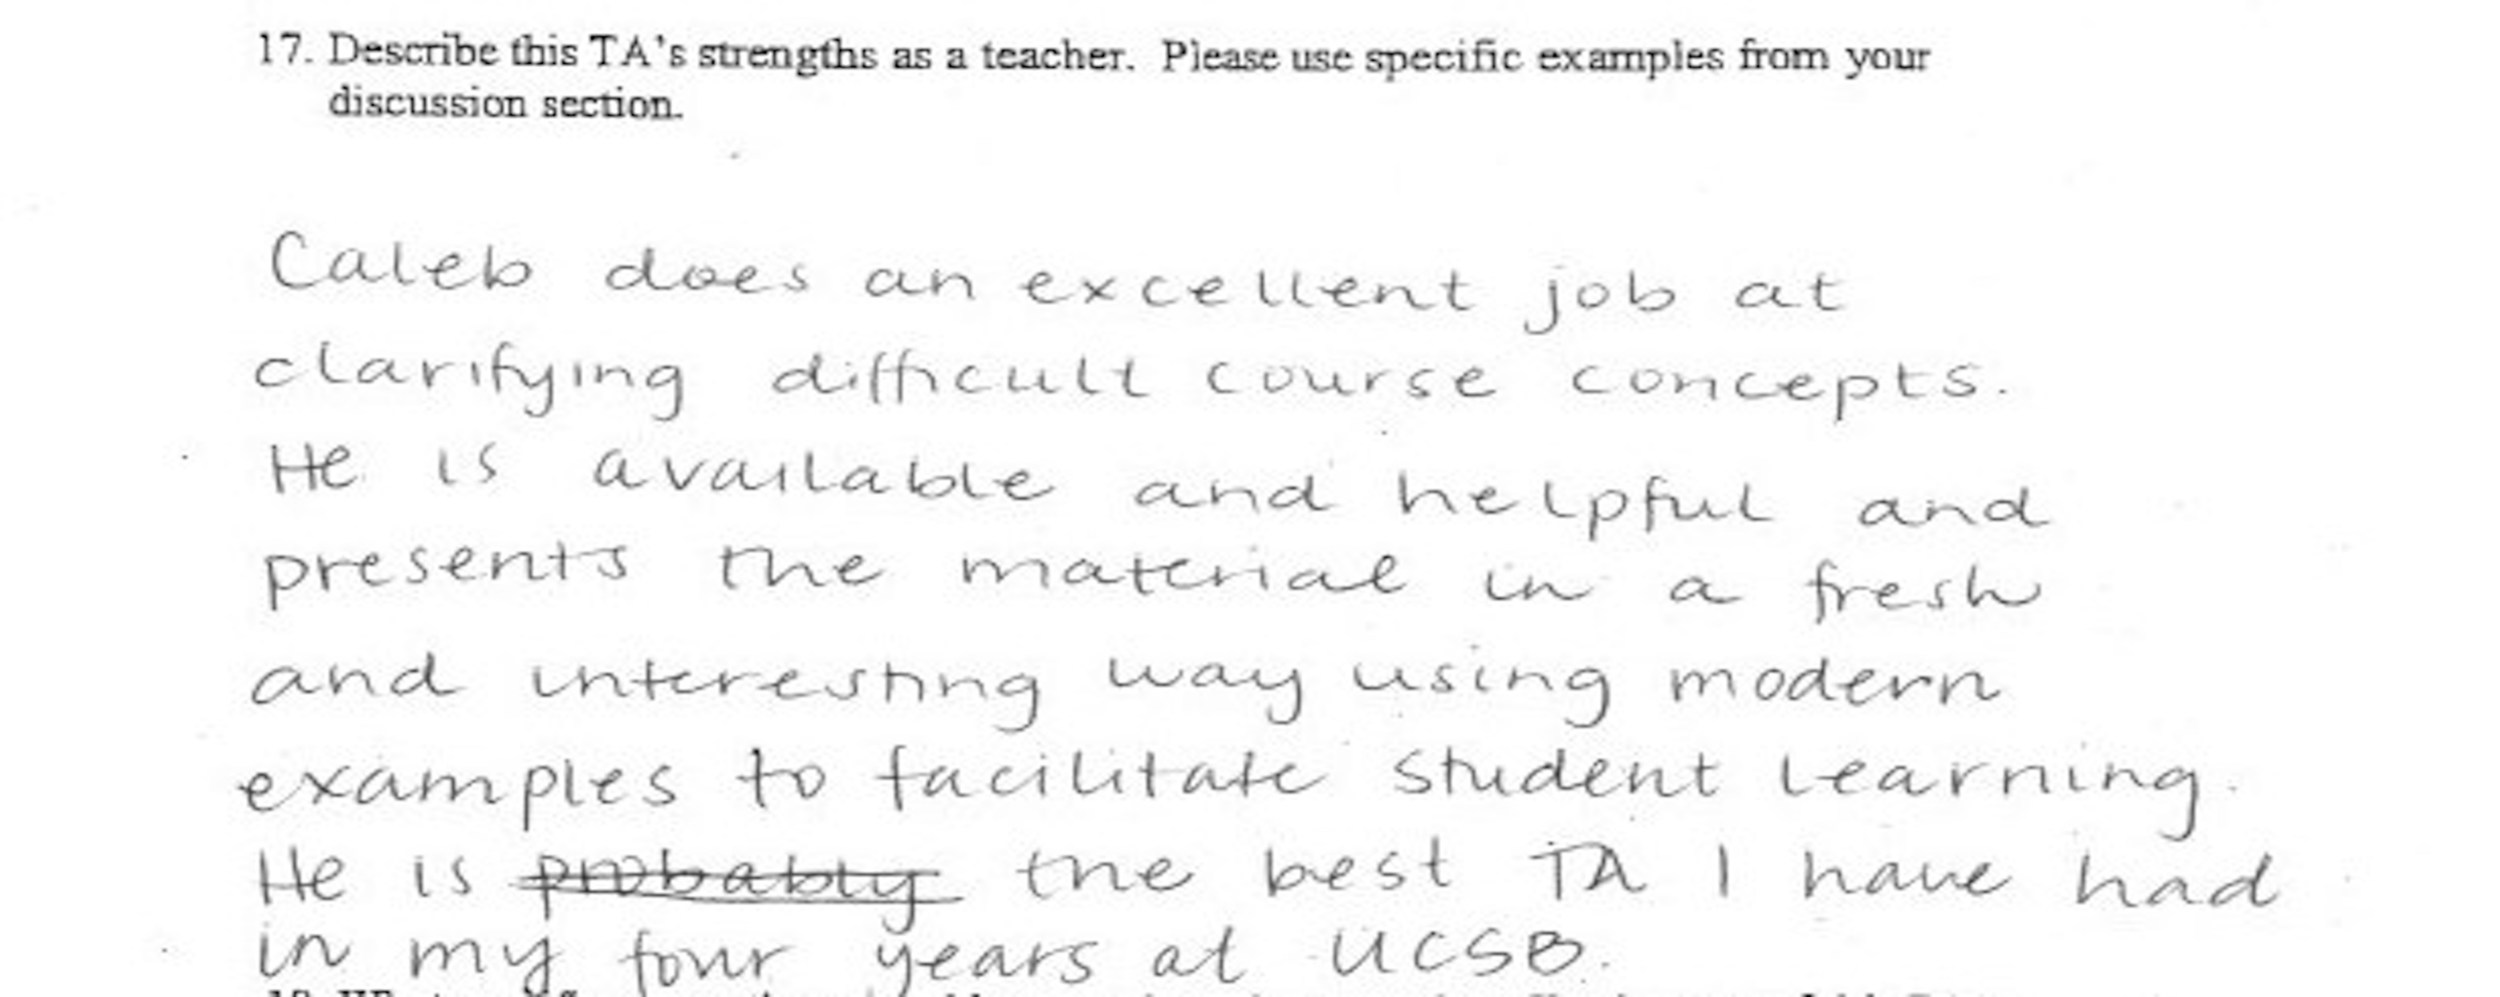 17. Describe this TA's strengths as a teacher. Please use specific examples from your
discussion section.
Caleb does an excellent job at
clarifying difficult course concepts.
He is available and helpful and
presents the material in a fresh
and interesting way using modern
examples to facilitate student learning.
He is probably the best TA I have had
in my four years at UCSB.